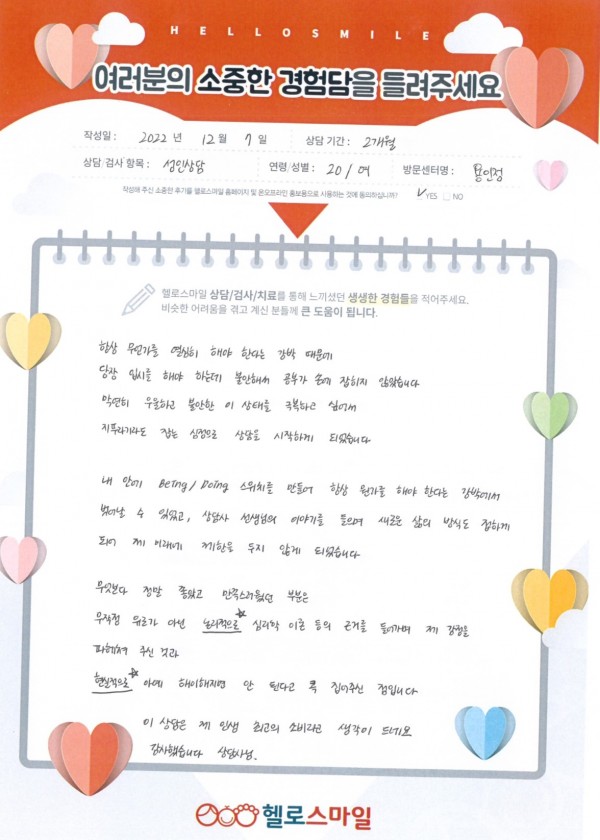 HELLOSMILE
여러분의 소중한 경험담을 들려주세요
작성일 : 2022 년 12 월 7 일 상담 기간 : 2개월
상담·검사 항목 : 성인상담 연령/성별 : 20 / 여 방문센터명 : 용인점
작성해 주신 소중한 후기를 헬로스마일 홈페이지 및 온오프라인 홍보용으로 사용하는 것에 동의하십니까? ✓YES □ NO
헬로스마일 상담/검사/치료를 통해 느끼셨던 생생한 경험들을 적어주세요.
비슷한 어려움을 겪고 계신 분들께 큰 도움이 됩니다.
항상 무언가를 열심히 해야 한다는 강박 때문에
당장 입시를 해야 하는데 불안해서 공부가 손에 잡히지 않았습니다
막연히 우울하고 불안한 이 상태를 극복하고 싶어서
지푸라기라도 잡는 심정으로 상담을 시작하게 되었습니다
내 안에 Being/Doing 스위치를 만들어 항상 뭔가를 해야 한다는 강박에서
벗어날 수 있었고, 상담사 선생님의 이야기를 들으며 새로운 삶의 방식도 접하게
되어 제 미래에 제한을 두지 않게 되었습니다
무엇보다 정말 좋았고 만족스러웠던 부분은
무작정 위로가 아닌 논리적으로☆ 심리학 이론 등의 근거를 들어가며 제 감정을
파헤쳐 주신 것과
현실적으로☆ 아예 해이해지면 안 된다고 콕 집어주신 점입니다
이 상담은 제 인생 최고의 소비라고 생각이 드네요
감사했습니다 상담사님.
헬로스마일